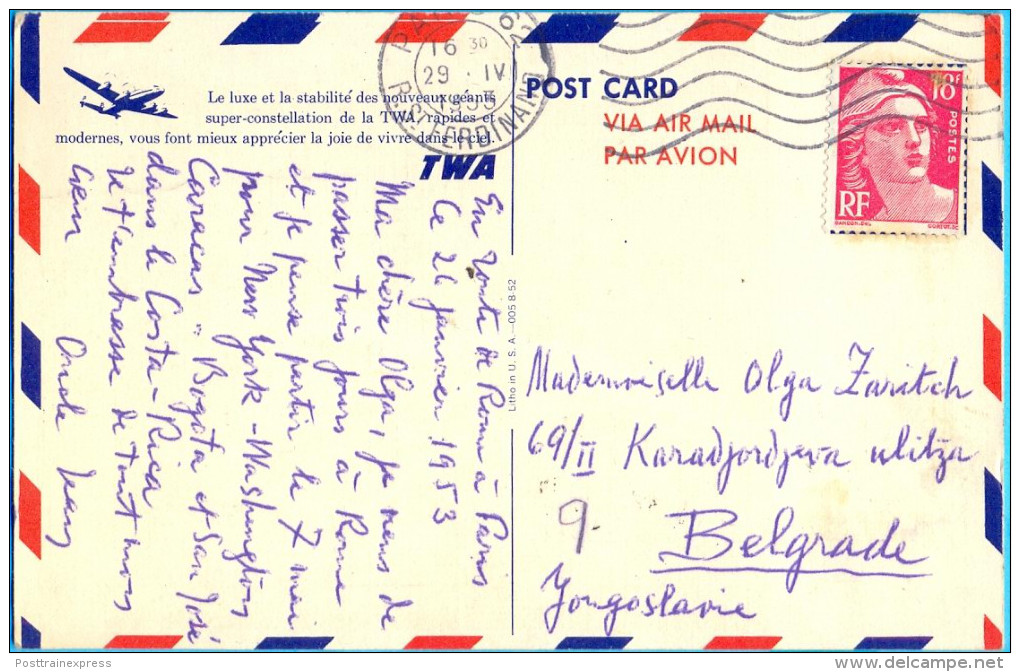 Le luxe et la stabilité des nouveaux géants
super-constellation de la TWA, rapides et
modernes, vous font mieux apprécier la joie de vivre dans le ciel.
TWA
16 30
29 · IV
1953
R. ST FERDINAND
POST CARD
VIA AIR MAIL
PAR AVION
18F
POSTES
RF
En route de Rome à Paris
Ce 26 janvier 1953
Ma chère Olga, je viens de
passer trois jours à Rome
et je pense partir le 7 mai
pour New York - Washington
Caracas - Bogota et San José
dans le Costa-Rica
Je t'embrasse de tout mon
cœur
Oncle Jean
Litho in U. S. A.—005 8-52
Mademoiselle Olga Zaritch
69/II Karadjordjeva ulitza
9
Belgrade
Yougoslavie
Posttrainexpress
www.delcampe.net